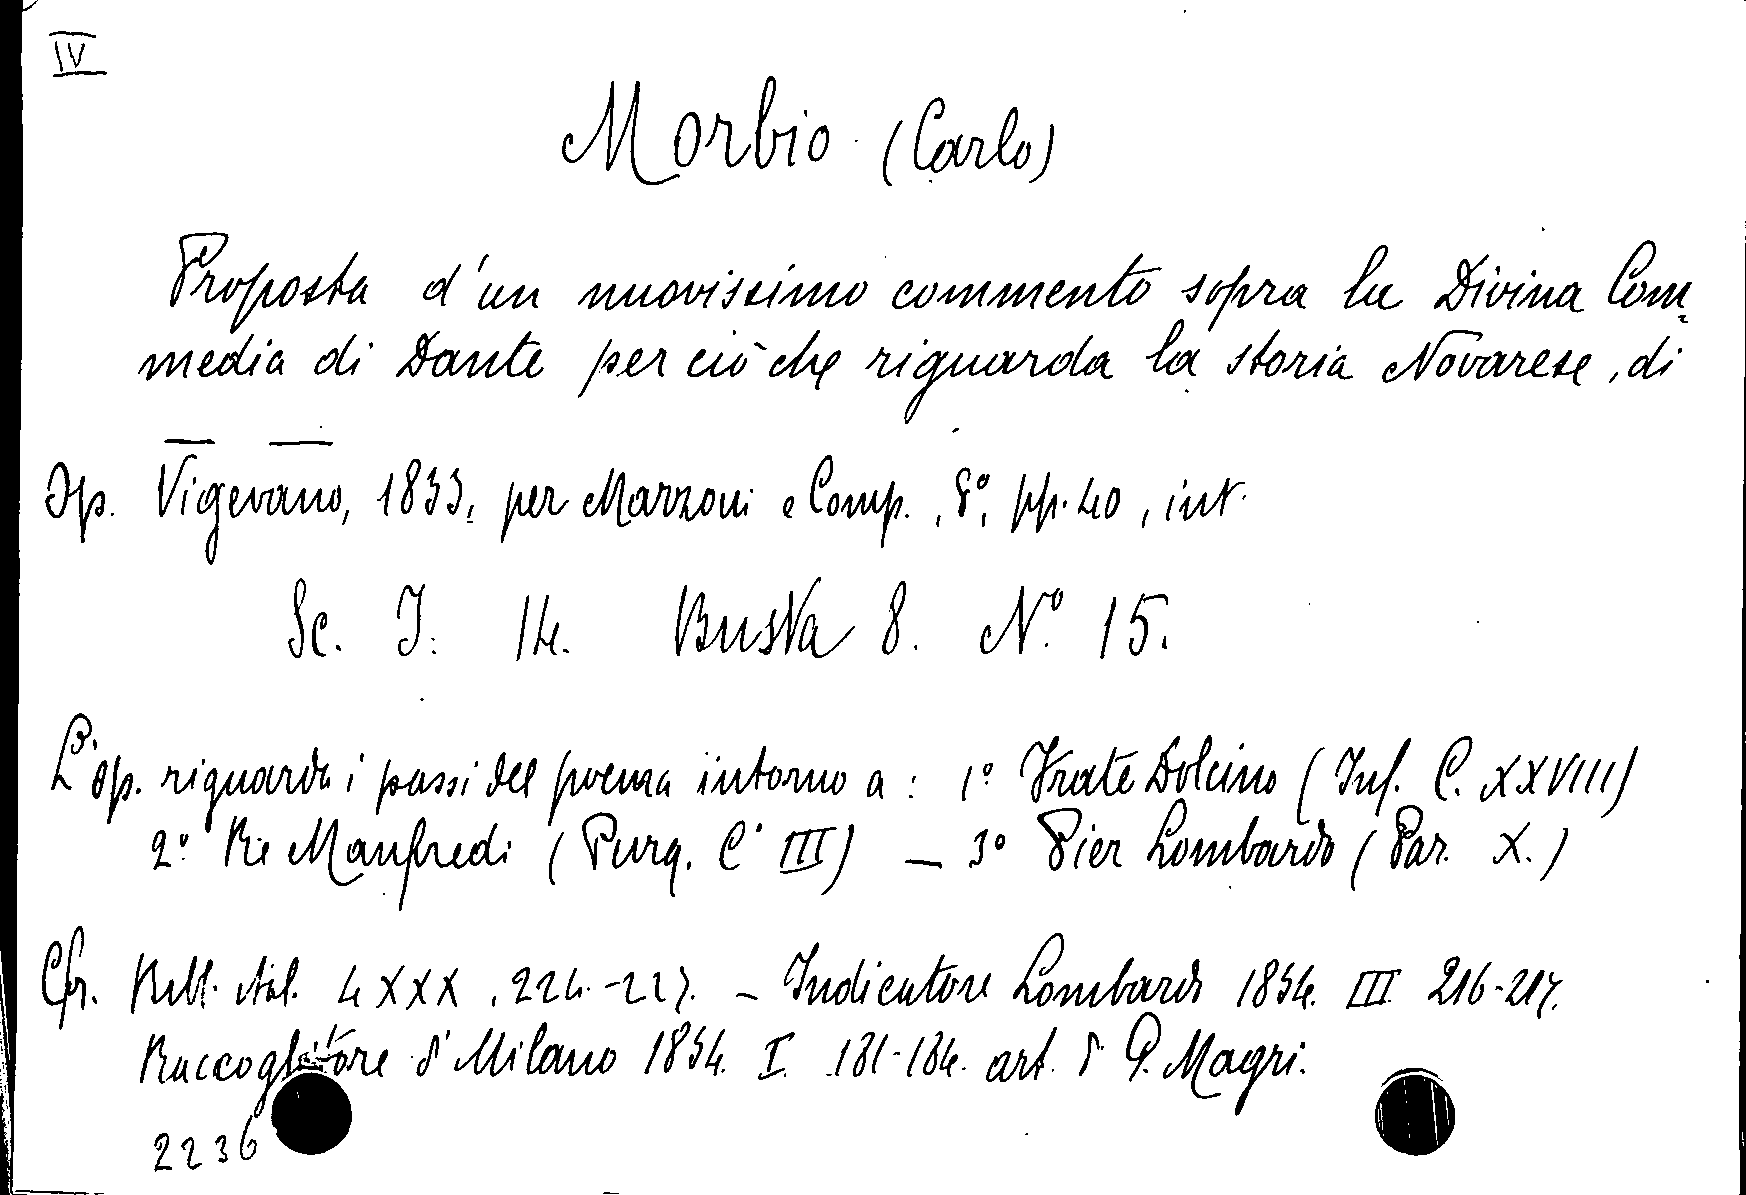 IV
Morbio (Carlo)
Proposta d'un nuovissimo commento sopra la Divina Com-
media di Dante per ciò che riguarda la storia Novarese, di
— —
Op. Vigevano, 1833, per Marzoni e Comp., 8º, pp. 40, int.
Sc. I. 14. Busta 8. Nº 15.
L'op. riguarda i passi del poema intorno a: 1º Frate Dolcino (Inf. C. XXVIII)
2º Re Manfredi (Purg. C. III) — 3º Pier Lombardo (Par. X.)
Cfr. Bibl. Ital. LXXX, 224-227. — Indicatore Lombardo 1834. III 216-217.
Raccoglitore d' Milano 1834. I. 181-184. art. d P. Magri.
2236